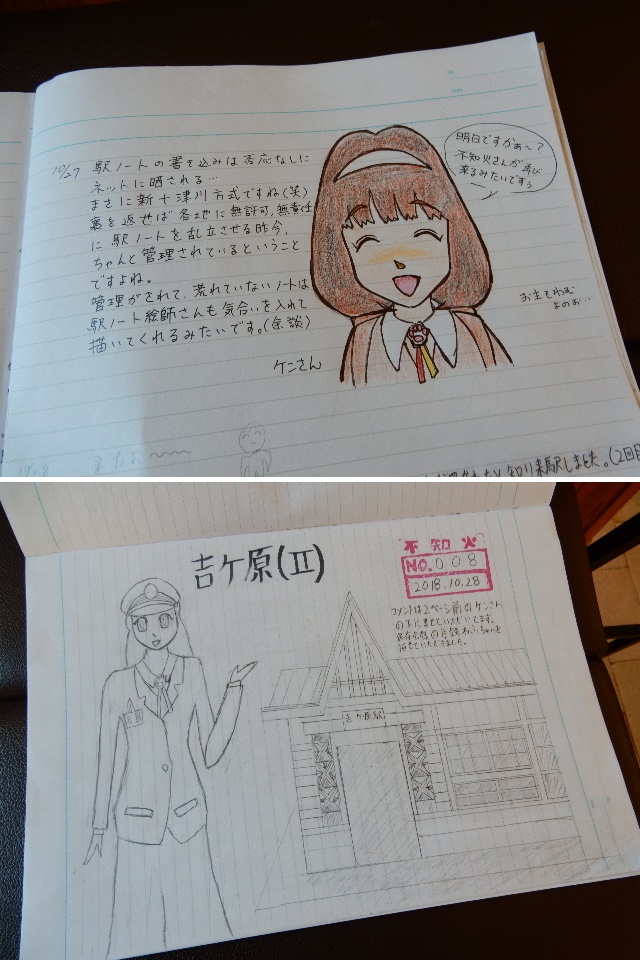 10/27 駅ノートの書き込みは否応なしに
ネットに晒される…
まさに新十津川方式ですね(笑)
裏を返せば各地に無許可、無責任
に駅ノートを乱立させる昨今、
ちゃんと管理されているということ
ですよね。
管理がされて、荒れていないノートは
駅ノート絵師さんも気合いを入れて
描いてくれるみたいです。(余談)
ケニさん
明日ですかぁ〜?
不知火さんが再び
来るみたいですぅ
来たよ〜〜
知り来駅しました。(2回目
吉ケ原(II)
不知火
NO.008
2018.10.28
コメントは2ページ前のケンさん
の下に書せていただいてます。
吉ケ原駅